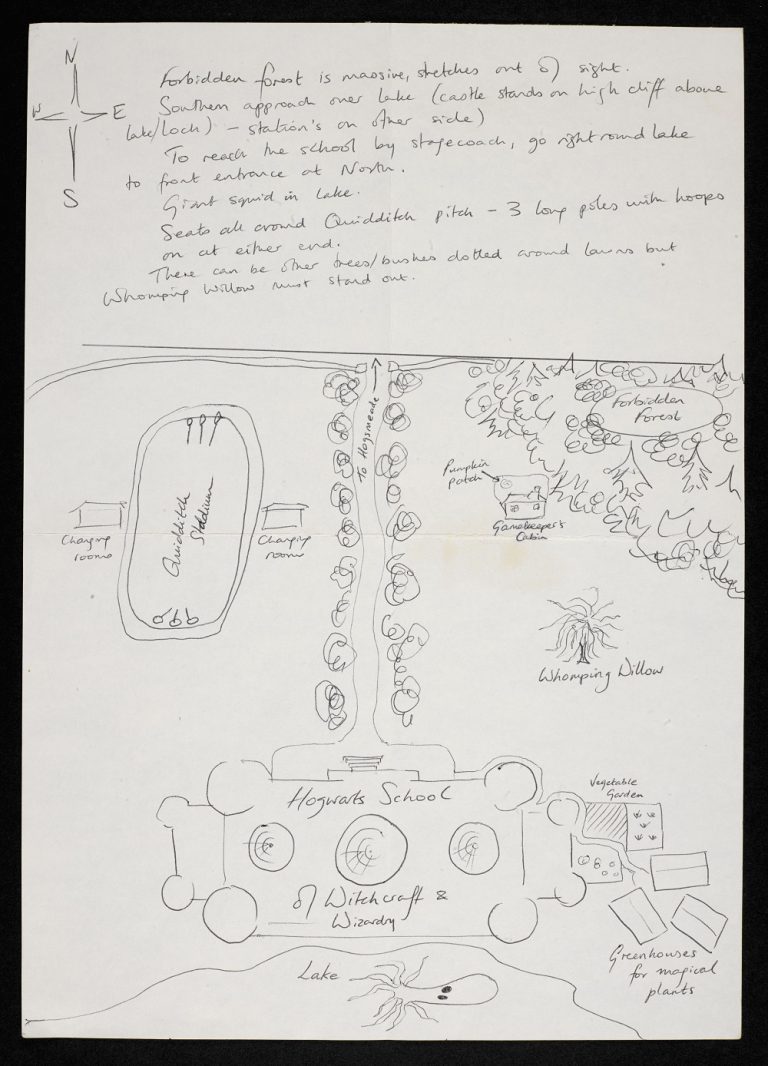 N
W
E
S
Forbidden forest is massive, stretches out of sight.
Southern approach over lake (castle stands on high cliff above
lake/loch) – station's on other side)
To reach the school by stagecoach, go right round lake
to front entrance at North.
Giant squid in lake.
Seats all around Quidditch pitch – 3 long poles with hoops
on at either end.
There can be other trees/bushes dotted around lawns but
Whomping Willow must stand out.
To Hogsmeade
Forbidden
Forest
Pumpkin
patch
Gamekeeper's
Cabin
Quidditch
Stadium
Changing
rooms
Changing
rooms
Whomping Willow
Vegetable
Garden
Hogwarts School
of Witchcraft &
Wizardry
Greenhouses
for magical
plants
Lake